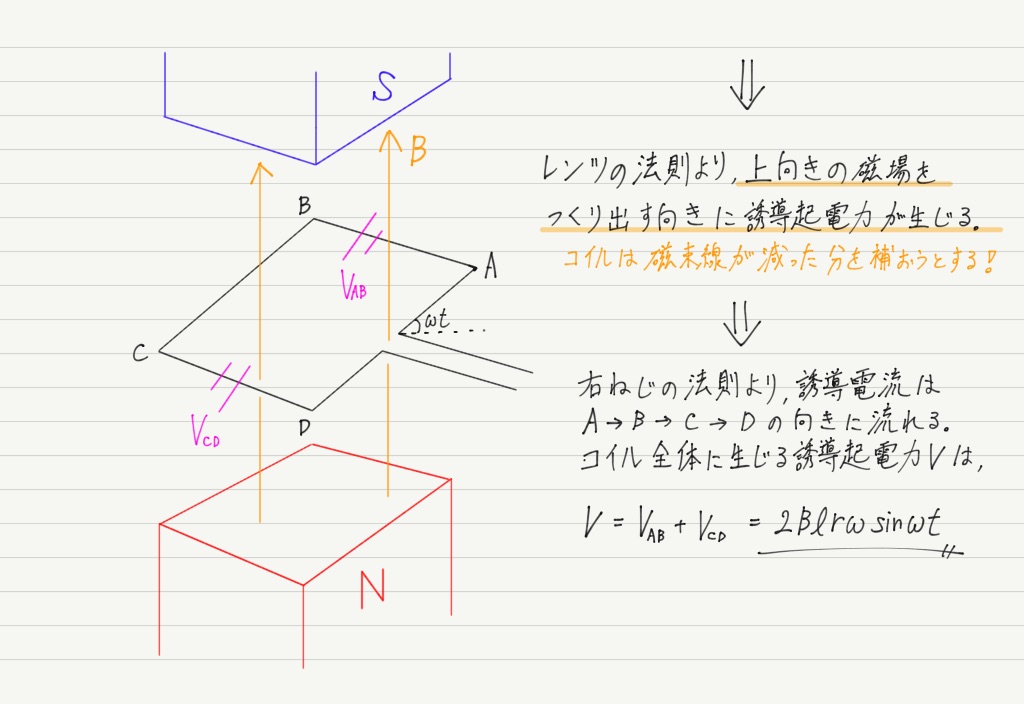 S
B
B
A
V_AB
ωt
C
V_CD
D
N
⇓
レンツの法則より,上向きの磁場を
つくり出す向きに誘導起電力が生じる。
コイルは磁束線が減った分を補おうとする!
⇓
右ねじの法則より,誘導電流は
A→B→C→Dの向きに流れる。
コイル全体に生じる誘導起電力Vは,
V = V_AB + V_CD = 2Blrω sinωt